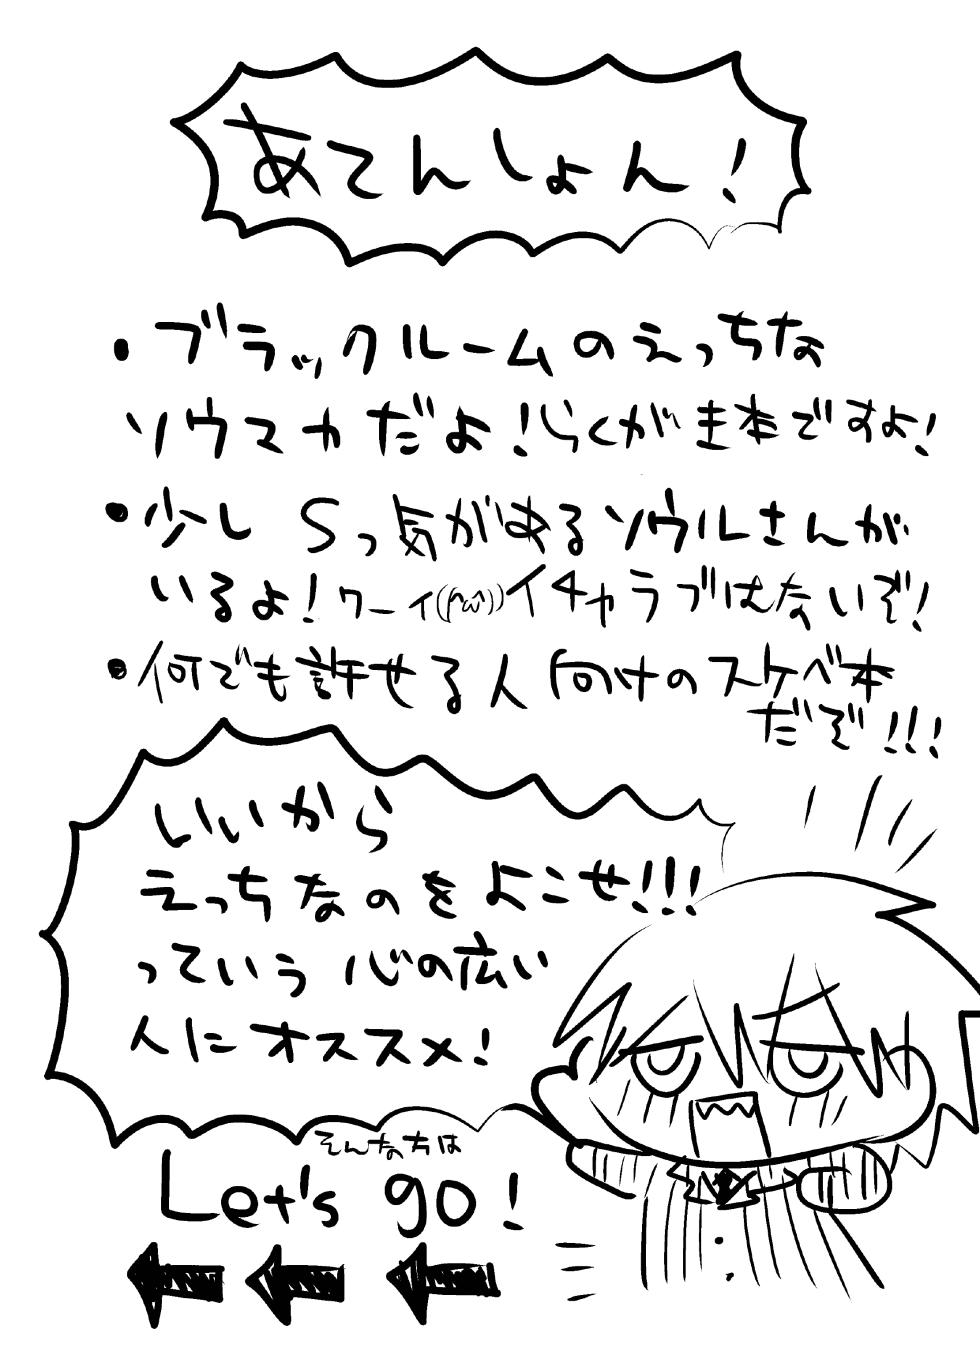 あてんしょん!
・ブラックルームのえっちな
ソウマカだよ!らくがき本ですよ!
・少し Sっ気があるソウルさんが
いるよ!ワーイ((^ω^))イチャラブはないぞ!
・何でも許せる人向けのスケベ本
だぞ!!!
いいから
えっちなのをよこせ!!!
っていう 心の広い
人にオススメ!
そんな方は
Let's go!